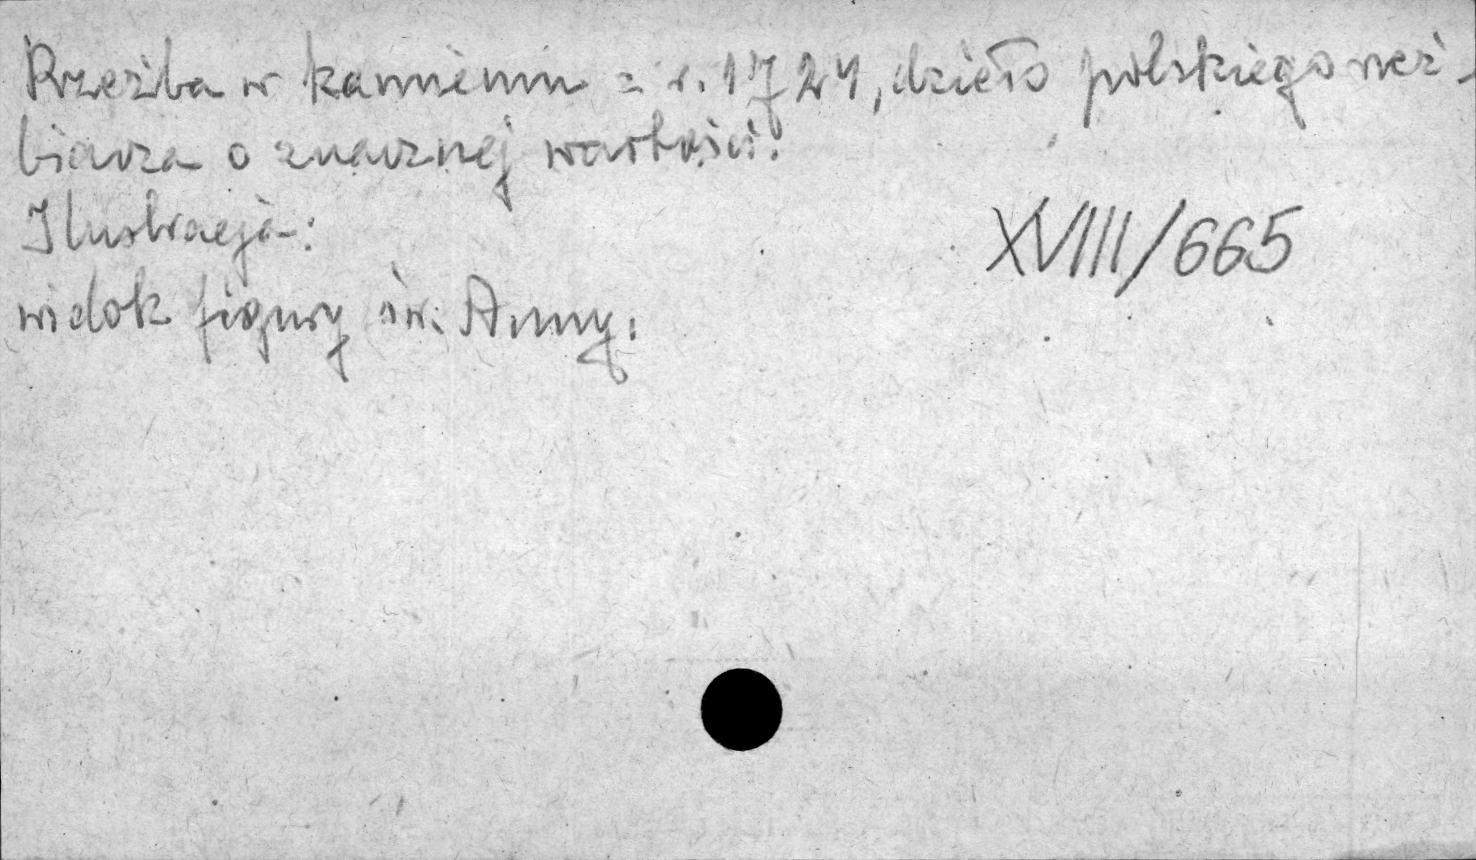 Rzeźba w kamieniu z r. 1724, dzieło polskiego rzeź-
biarza o znacznej wartości.
Ilustracja:
XVIII/665
widok figury św. Anny.